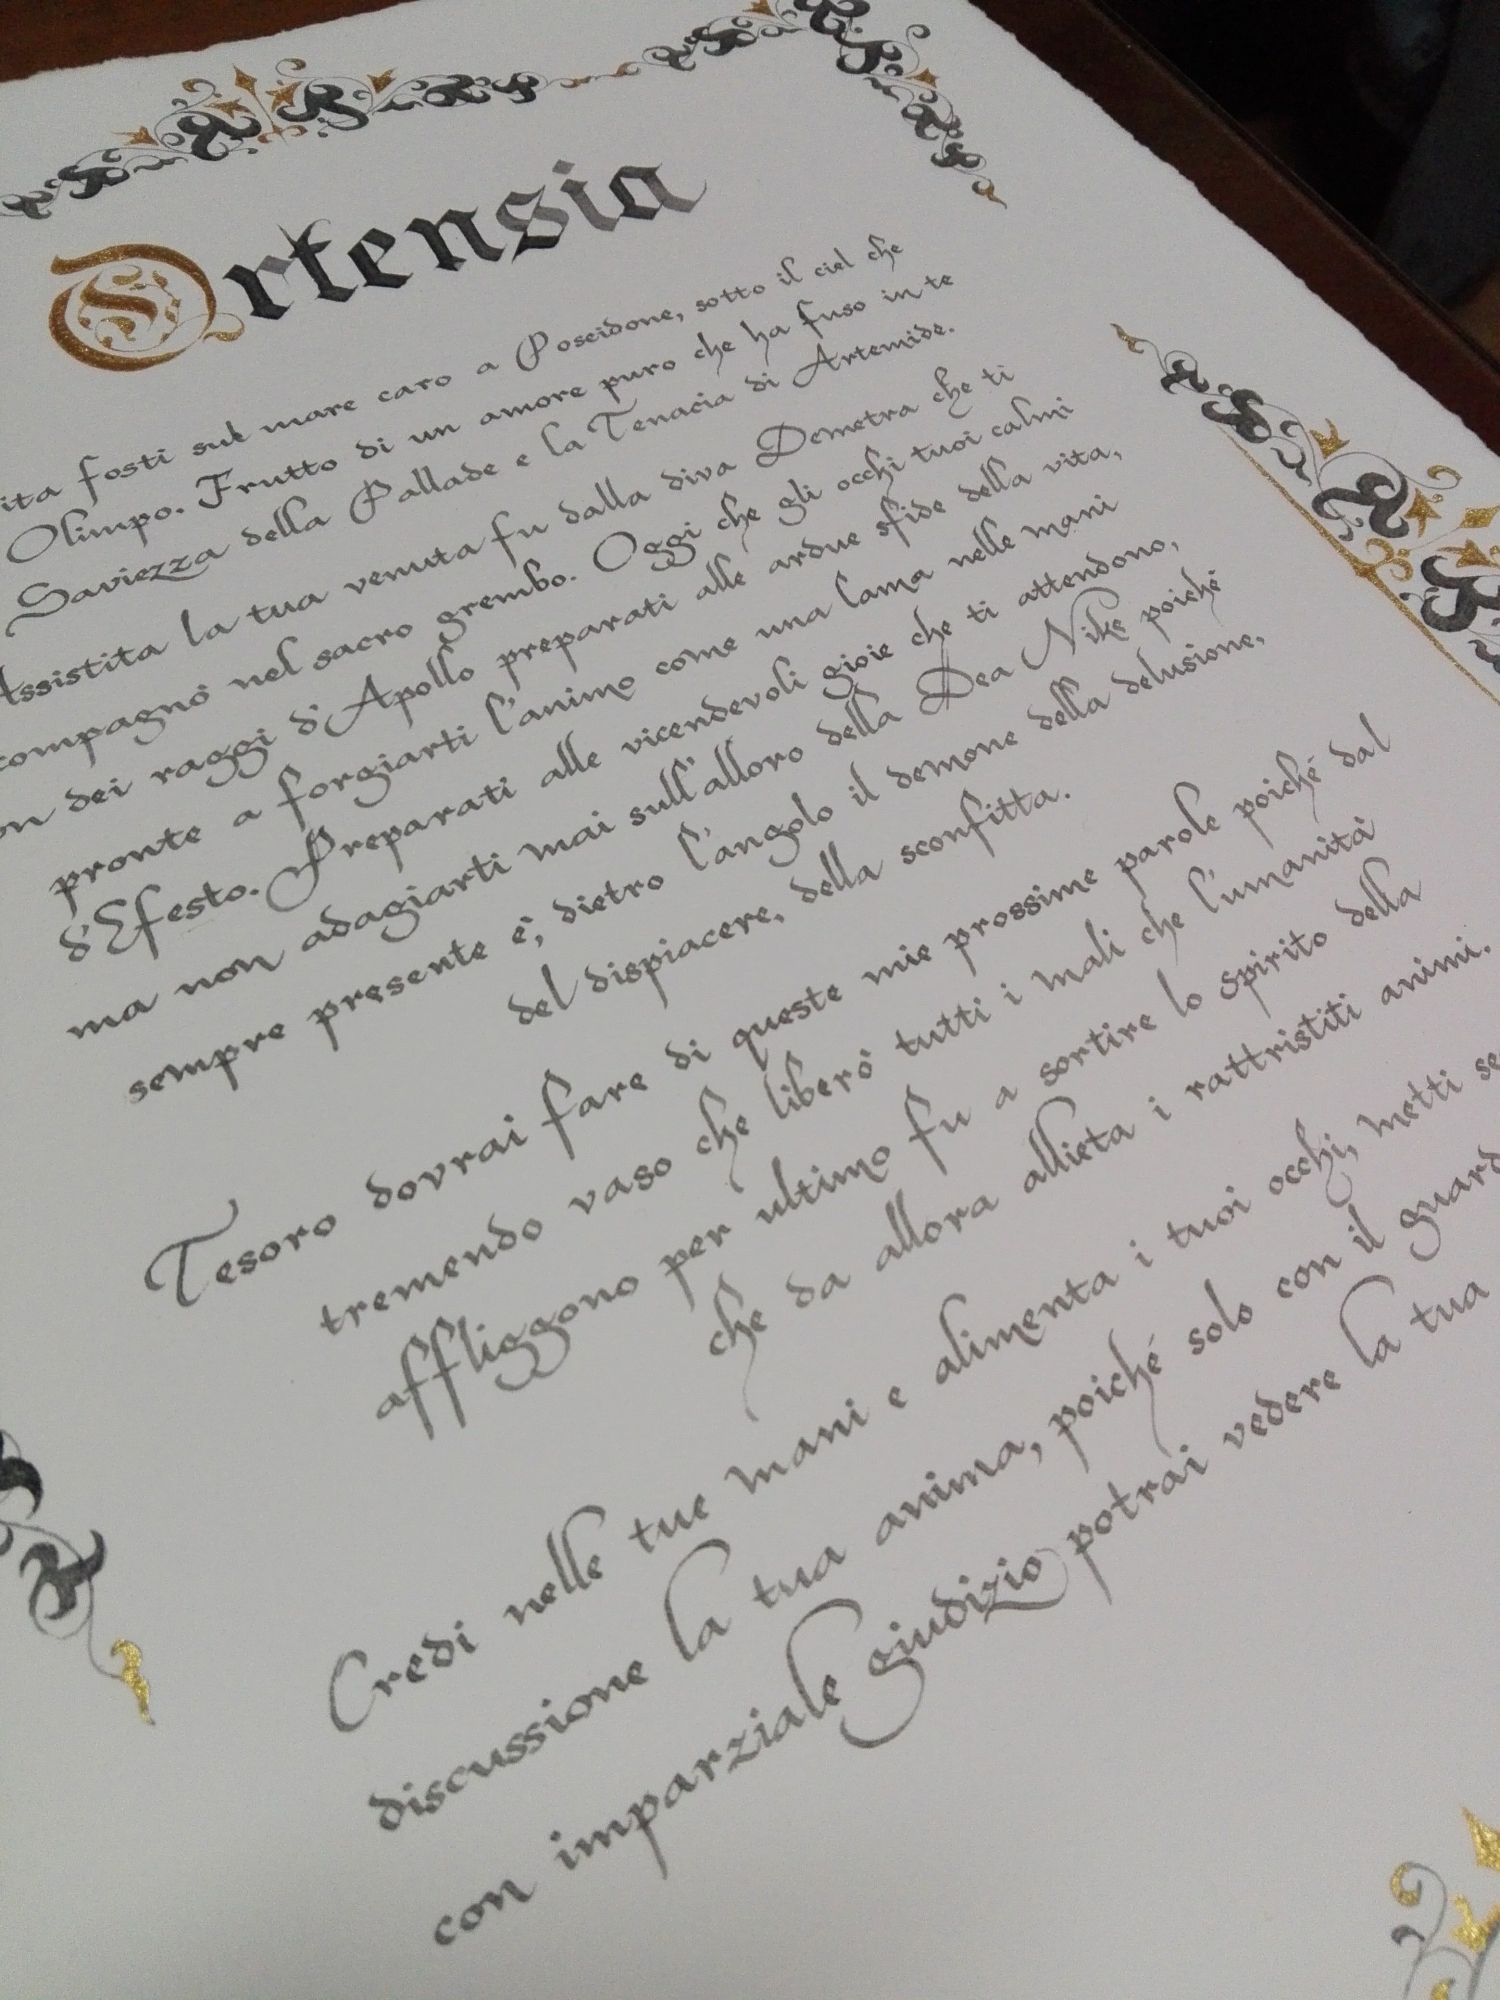 Ortensia
fosti sul mare caro a Poseidone, sotto il ciel che
Olimpo. Frutto di un amore puro che ha fuso in te
Saviezza della Pallade e la Tenacia di Artemide.
Assistita la tua venuta fu dalla diva Demetra che ti
compagnò nel sacro grembo. Oggi che gli occhi tuoi calmi
dei raggi d'Apollo preparati alle ardue sfide della vita,
pronte a forgiarti l'animo come una lama nelle mani
d'Efesto. Preparati alle vicendevoli gioie che ti attendono,
ma non adagiarti mai sull'alloro della Dea Nike poiché
sempre presente è, dietro l'angolo il demone della delusione,
del dispiacere, della sconfitta.
Tesoro dovrai fare di queste mie prossime parole poiché dal
tremendo vaso che liberò tutti i mali che l'umanità
affliggono per ultimo fu a sortire lo spirito della
che da allora allieta i rattristiti animi.
Credi nelle tue mani e alimenta i tuoi occhi, metti se
discussione la tua anima, poiché solo con il guard
con imparziale giudizio potrai vedere la tua